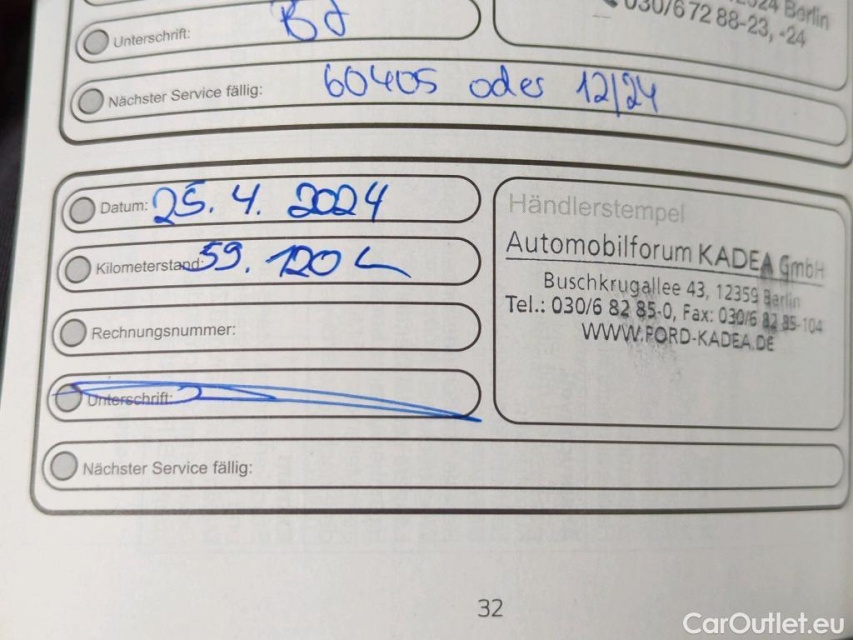 Berlin
030/6 72 88-23, -24
Unterschrift:
Nächster Service fällig: 60405 oder 12/24
Datum: 25. 4. 2024
Kilometerstand: 59. 120
Rechnungsnummer:
Unterschrift:
Nächster Service fällig:
Händlerstempel
Automobilforum KADEA GmbH
Buschkrugallee 43, 12359 Berlin
Tel.: 030/6 82 85-0, Fax: 030/6 82 85-104
WWW.FORD-KADEA.DE
32
CarOutlet.eu